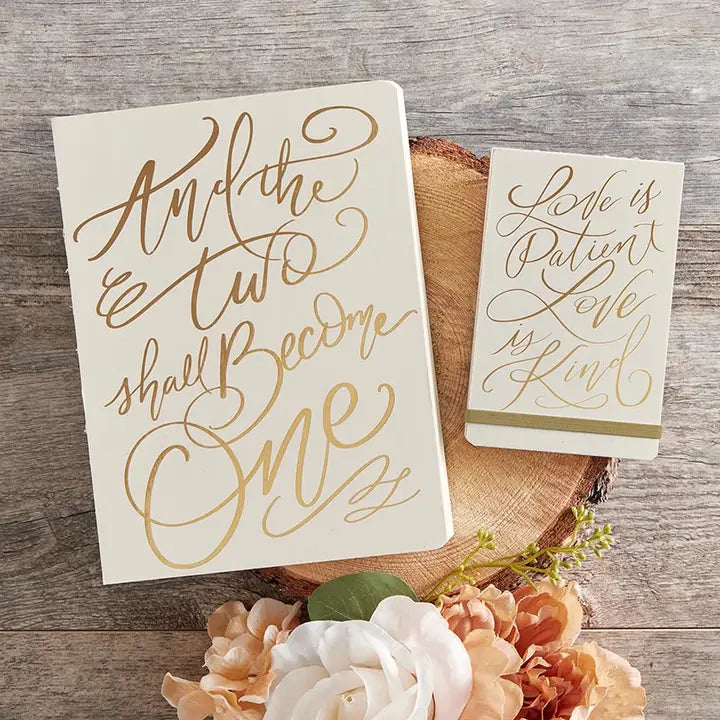 And the
two
shall Become
One
Love is
Patient
Love
is
Kind